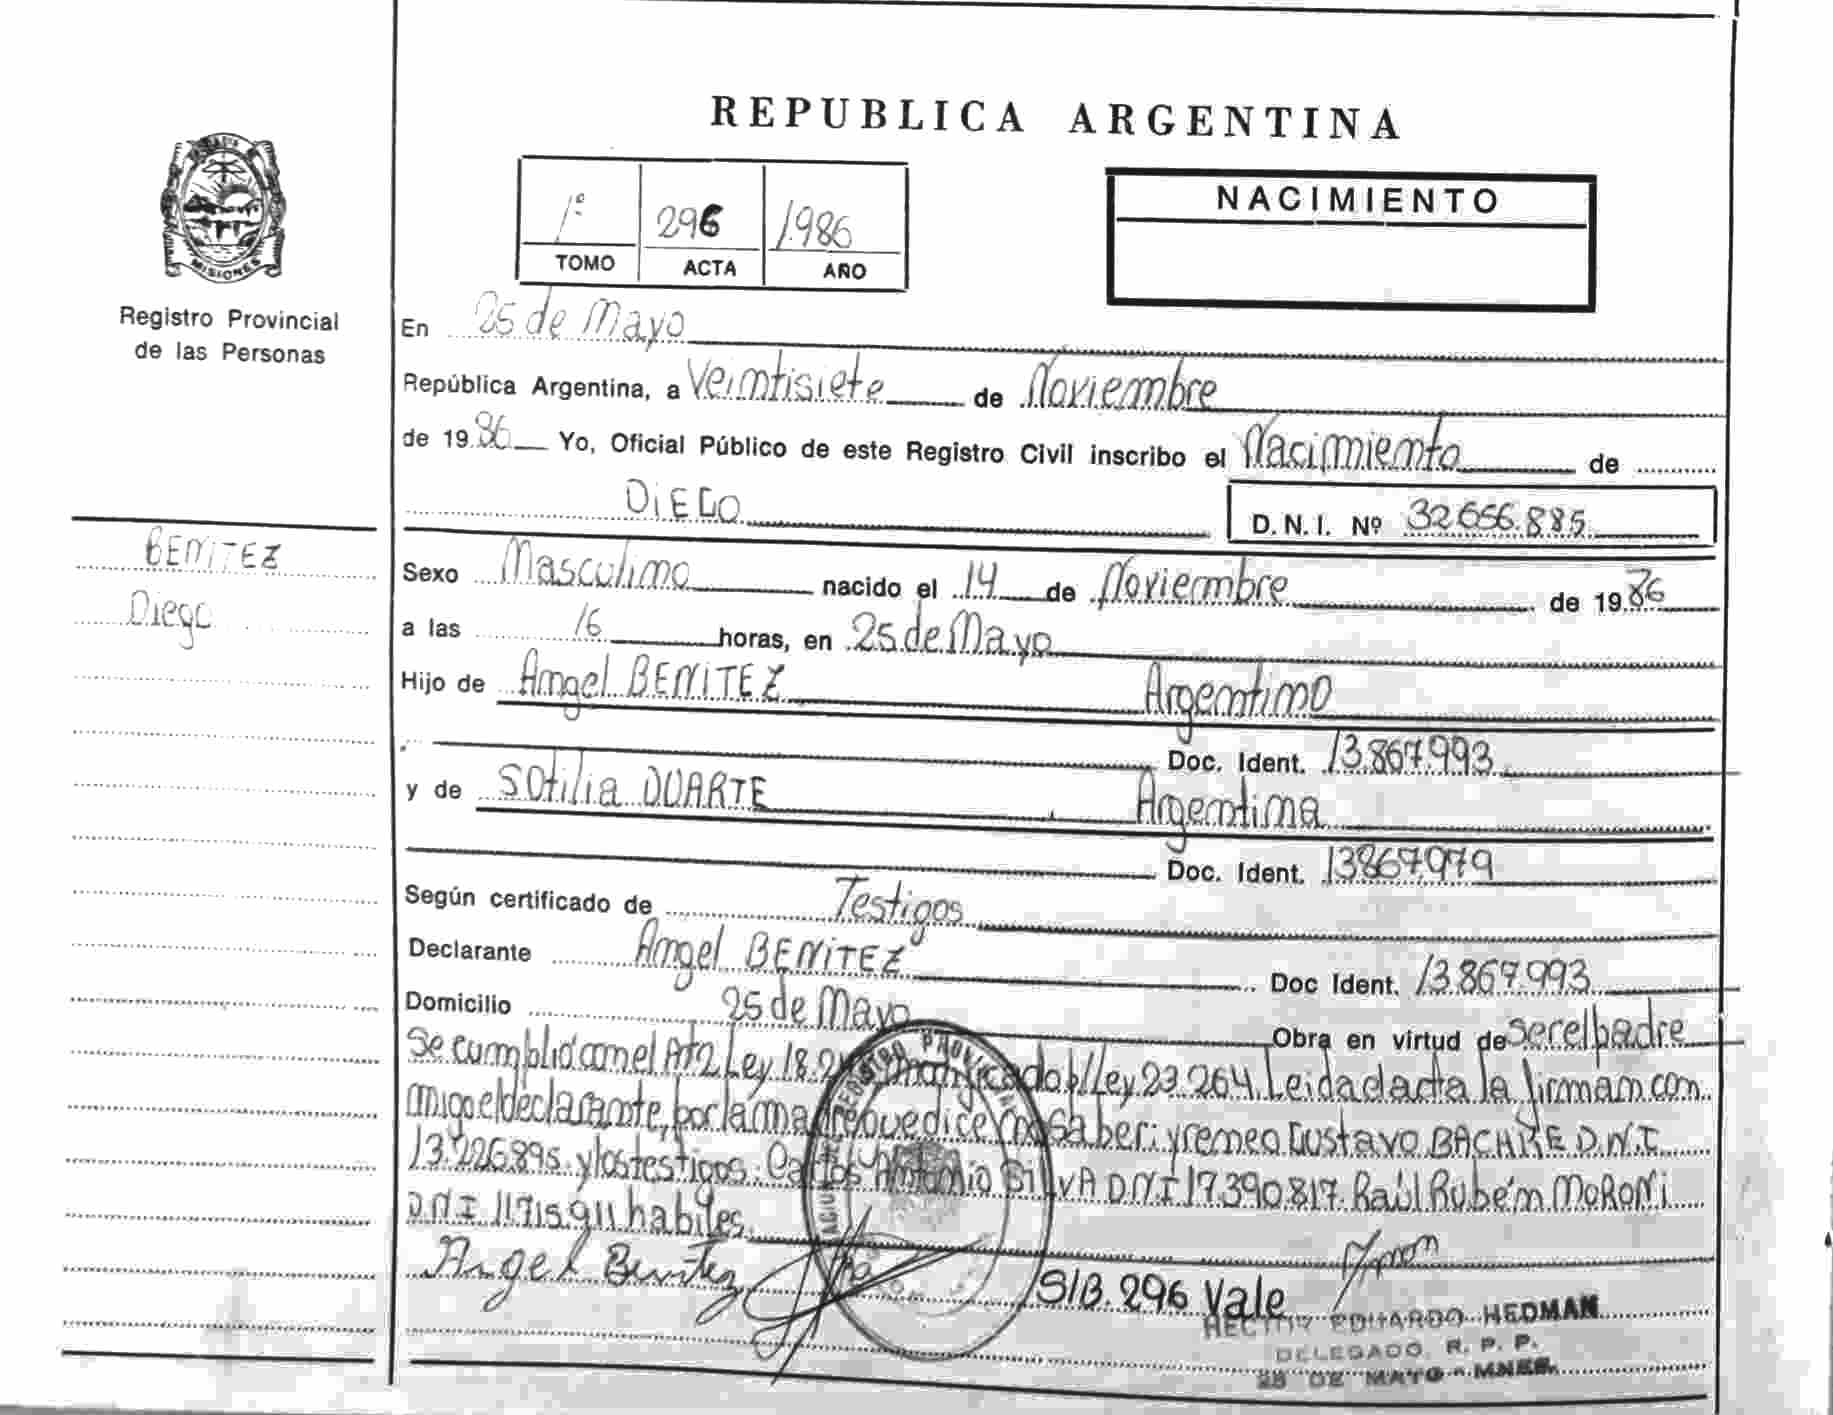 REPUBLICA ARGENTINA
MISIONES
Registro Provincial
de las Personas
1º 296 1.986
TOMO ACTA AÑO
NACIMIENTO
En 25 de Mayo
República Argentina, a Veintisiete de Noviembre
de 1986 Yo, Oficial Público de este Registro Civil inscribo el Nacimiento de
DiEGO D.N.I. Nº 32.656.885
BENITEZ
Diego
Sexo Masculino nacido el 14 de Noviembre de 1986
a las 16 horas, en 25 de Mayo
Hijo de Angel BENITEZ Argentino
Doc. Ident. 13.867.993
y de SOtilia DUARTE Argentina
Doc. Ident. 13867.979
Según certificado de Testigos
Declarante Angel BENITEZ Doc Ident. 13.867.993
Domicilio 25 de Mayo Obra en virtud de ser el padre
Se cumplió con el At2 Ley 18.2 modificado p/Ley 23.264. Leida el acta la firman con
migo el declarante, por la madre que dice no saber: y remeo Gustavo D.N.I
13.226.895. y los testigos: Carlos Antonio SiLvA D.N.I 17.390.817. Raúl Rubén MoRoNi
D.N.I 11.715.911 habiles.
Angel Benitez
S/B. 296 Vale
HECTOR EDUARDO HEDMAN
DELEGADO R. P. P.
25 DE MAYO - MNES.